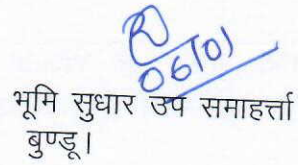 06/01
भूमि सुधार उप समाहर्त्ता
बुण्डू।